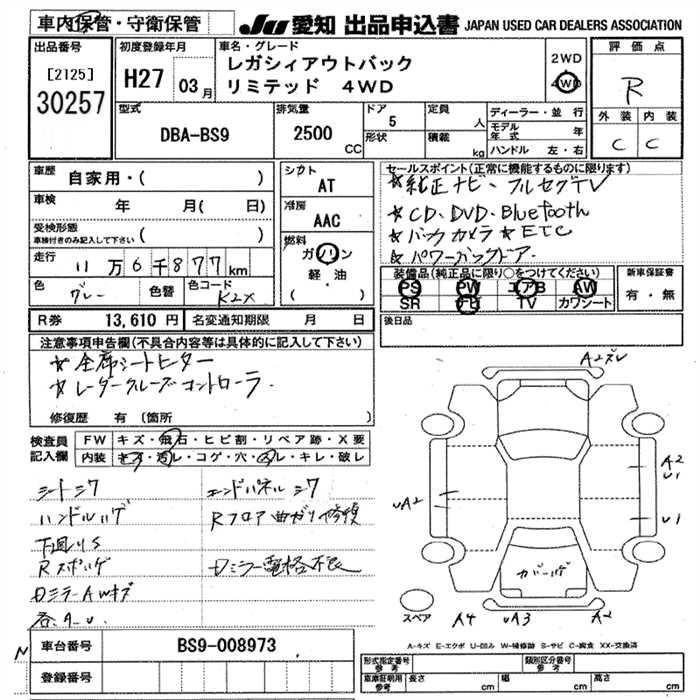 車内保管・守衛保管
JU 愛知 出品申込書 JAPAN USED CAR DEALERS ASSOCIATION
出品番号
[2125]
30257
初度登録年月
H27 03月
車名・グレード
レガシィアウトバック
リミテッド 4WD
2WD
4WD
評価点
R
外装 内装
C C
型式
DBA-BS9
排気量
2500 CC
ドア
5
形状
定員 人
積載 kg
ディーラー・並行
モデル年式 年
ハンドル 左・右
車歴
自家用・( )
車検 年 月( 日)
受検形態
車検付きのみ記入して下さい ( )
走行 11万6千877km
色 グレー 色替 色コード K2X
シフト
AT
冷房
AAC
燃料
ガソリン
軽油
( )
セールスポイント(正常に機能するものに限ります)
☆純正ナビ・フルセグTV
☆CD、DVD、Bluetooth
☆バックカメラ☆ETC
☆パワーバックドア.
装備品(純正品に限り○をつけてください)
PS PW エアB AW
SR TV カワシート
新車保証書
有・無
R券 13,610円 名変通知期限 月 日
後日品
注意事項申告欄(不具合内容等は具体的に記入して下さい)
☆全席シートヒーター
☆レーダークルーズコントローラ
修復歴 有(箇所 )
検査員記入欄
FW キズ・飛石・ヒビ割・リペア跡・X要
内装 キズ・汚レ・コゲ・穴・スレ・キレ・破レ
シートシワ
ハンドルハゲ
下廻りS
Rスポハゲ
DミラーAWキズ
各A.U
エンドパネルシワ
Rフロア曲ガリ修損
Dミラー電格不良
A2ズレ
UA2
A2
U1
U1
カバーハゲ
スペア
A4 UA3 A2
A-キズ E-エクボ U-凹み W-補修跡 S-サビ C-腐食 XX-交換済
N
車台番号 BS9-008973
登録番号
形式指定番号 参考
類別区分番号 参考
車庫証明用 参考 長さ cm 幅 cm 高さ cm